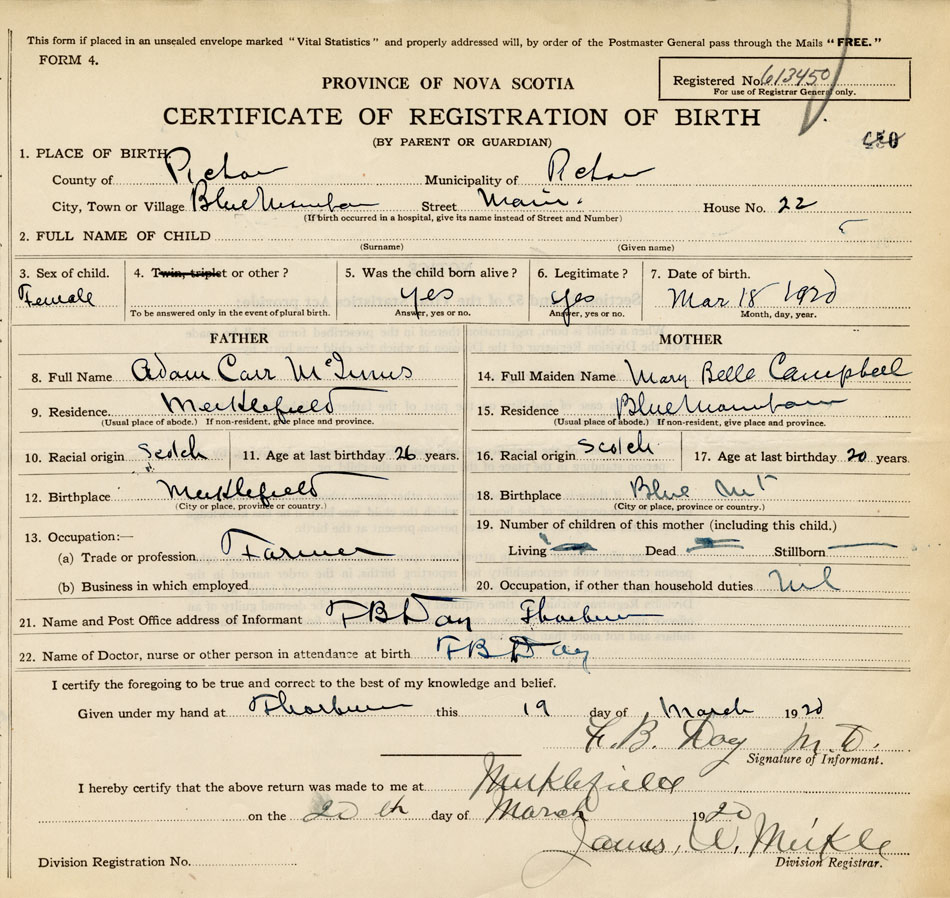 This form if placed in an unsealed envelope marked "Vital Statistics" and properly addressed will, by order of the Postmaster General pass through the Mails "FREE."
FORM 4.
Registered No. 613450
For use of Registrar General only.
PROVINCE OF NOVA SCOTIA
CERTIFICATE OF REGISTRATION OF BIRTH
(BY PARENT OR GUARDIAN)
1. PLACE OF BIRTH.
County of Pictou Municipality of Pictou
City, Town or Village Blue Mountain Street Main. House No. 22
(If birth occurred in a hospital, give its name instead of Street and Number)
2. FULL NAME OF CHILD
(Surname) (Given name)
3. Sex of child. 4. Twin, triplet or other? 5. Was the child born alive? 6. Legitimate? 7. Date of birth.
Female Yes Yes Mar 18 1920
To be answered only in the event of plural birth. Answer, yes or no. Answer, yes or no. Month, day, year.
FATHER MOTHER
8. Full Name Adam Carr McInnis 14. Full Maiden Name Mary Belle Campbell
9. Residence. Meiklefield 15. Residence Blue Mountain
(Usual place of abode.) If non-resident, give place and province. (Usual place of abode.) If non-resident, give place and province.
10. Racial origin Scotch 11. Age at last birthday 26 years. 16. Racial origin Scotch 17. Age at last birthday 20 years.
12. Birthplace Meiklefield 18. Birthplace Blue Mt
(City or place, province or country.) (City or place, province or country.)
13. Occupation:— 19. Number of children of this mother (including this child.)
(a) Trade or profession Farmer Living Dead Stillborn
(b) Business in which employed 20. Occupation, if other than household duties Nil
21. Name and Post Office address of Informant FB Day Thorburn
22. Name of Doctor, nurse or other person in attendance at birth FB Day
I certify the foregoing to be true and correct to the best of my knowledge and belief.
Given under my hand at Thorburn this 19 day of March 1920
F. B. Day M.D.
Signature of Informant.
I hereby certify that the above return was made to me at Meiklefield
on the 20th day of March 1920
James W. Meikle
Division Registration No. Division Registrar.